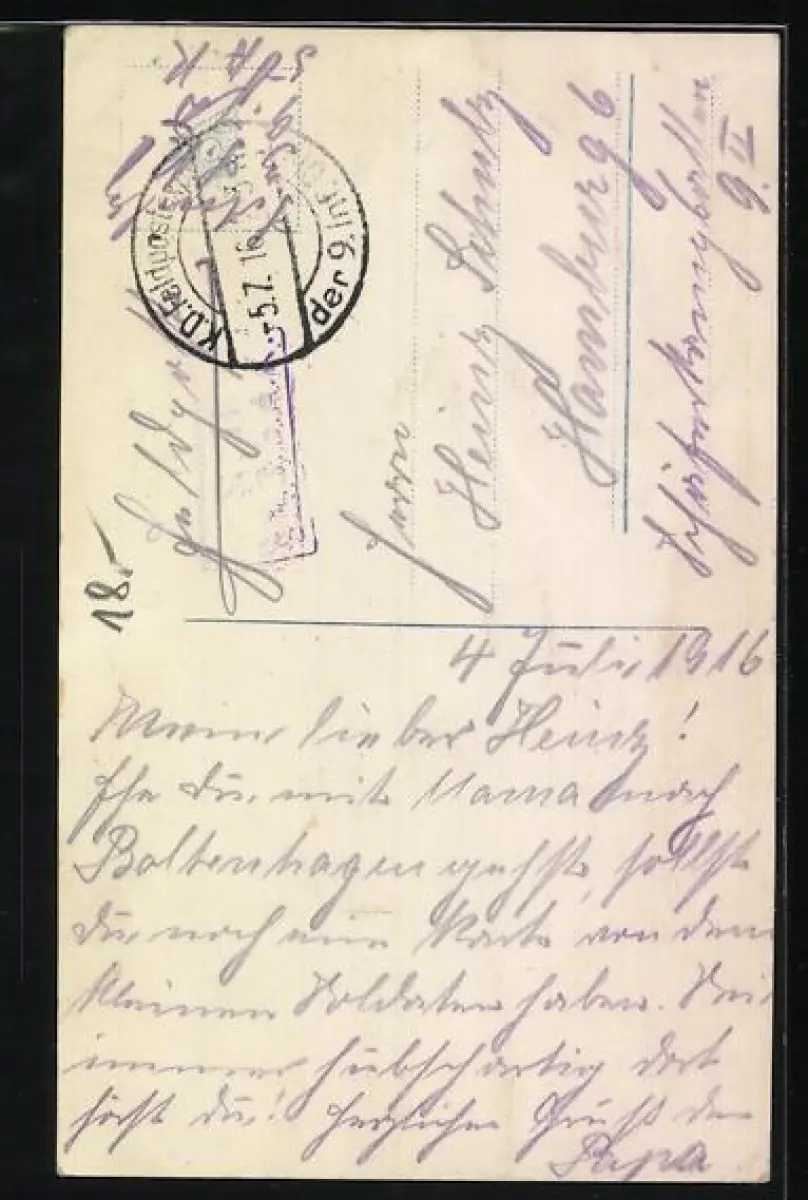 K.D. Feldpostex
-5.7.16
der 9. Inf.
Feldpost
18.-
Herrn
Heinz Schulz
Hamburg 6
Schäferkampsallee
9. II
4 Juli 1916
Mein lieber Heinz!
Ehe du mit Mama nach
Boltenhagen gehst, sollst
du noch eine Karte von dem
kleinen Soldaten haben. Sei
immer hübsch artig dort
hörst du! Herzlichen Gruß dein
Papa